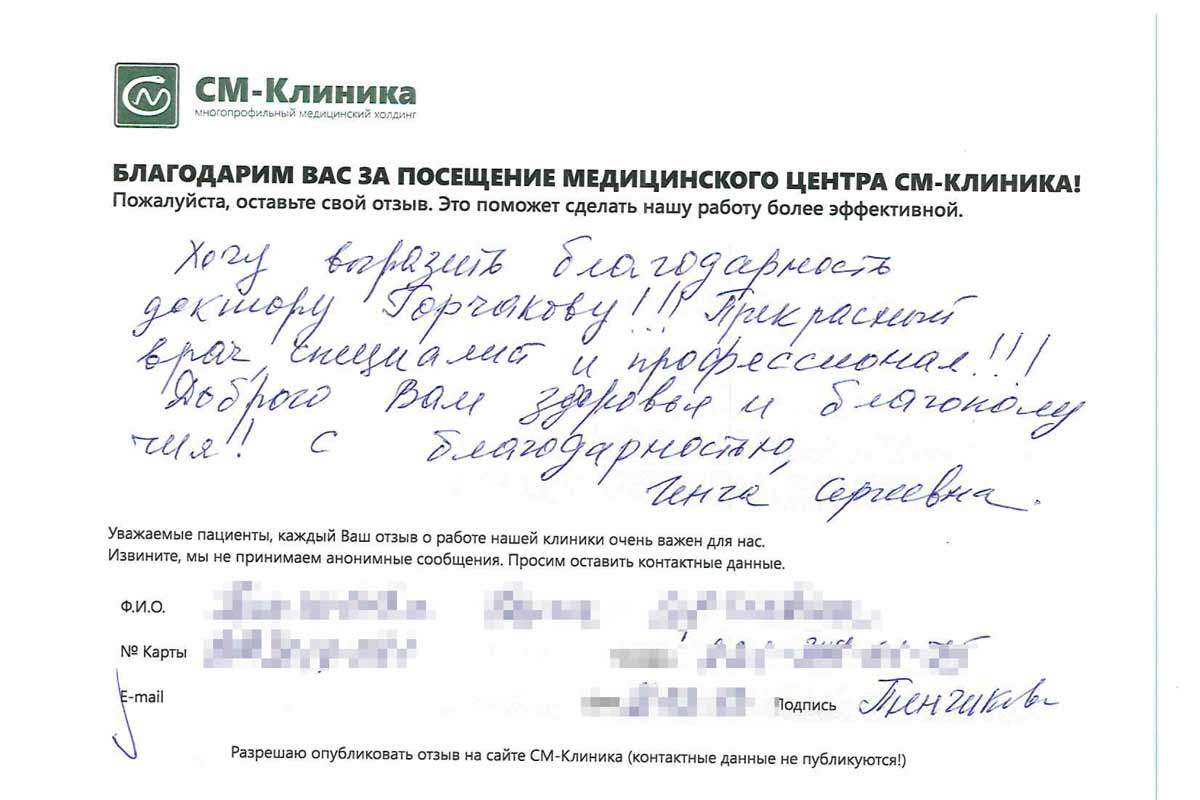 СМ-Клиника
многопрофильный медицинский холдинг
БЛАГОДАРИМ ВАС ЗА ПОСЕЩЕНИЕ МЕДИЦИНСКОГО ЦЕНТРА СМ-КЛИНИКА!
Пожалуйста, оставьте свой отзыв. Это поможет сделать нашу работу более эффективной.
Хочу выразить благодарность
доктору Горчакову!!! Прекрасный
врач, специалист и профессионал!!!
Доброго Вам здоровья и благополу
чия!! С благодарностью,
Инга Сергеевна.
Уважаемые пациенты, каждый Ваш отзыв о работе нашей клиники очень важен для нас.
Извините, мы не принимаем анонимные сообщения. Просим оставить контактные данные.
Ф.И.О.
№ Карты
E-mail
Подпись
Разрешаю опубликовать отзыв на сайте СМ-Клиника (контактные данные не публикуются!)